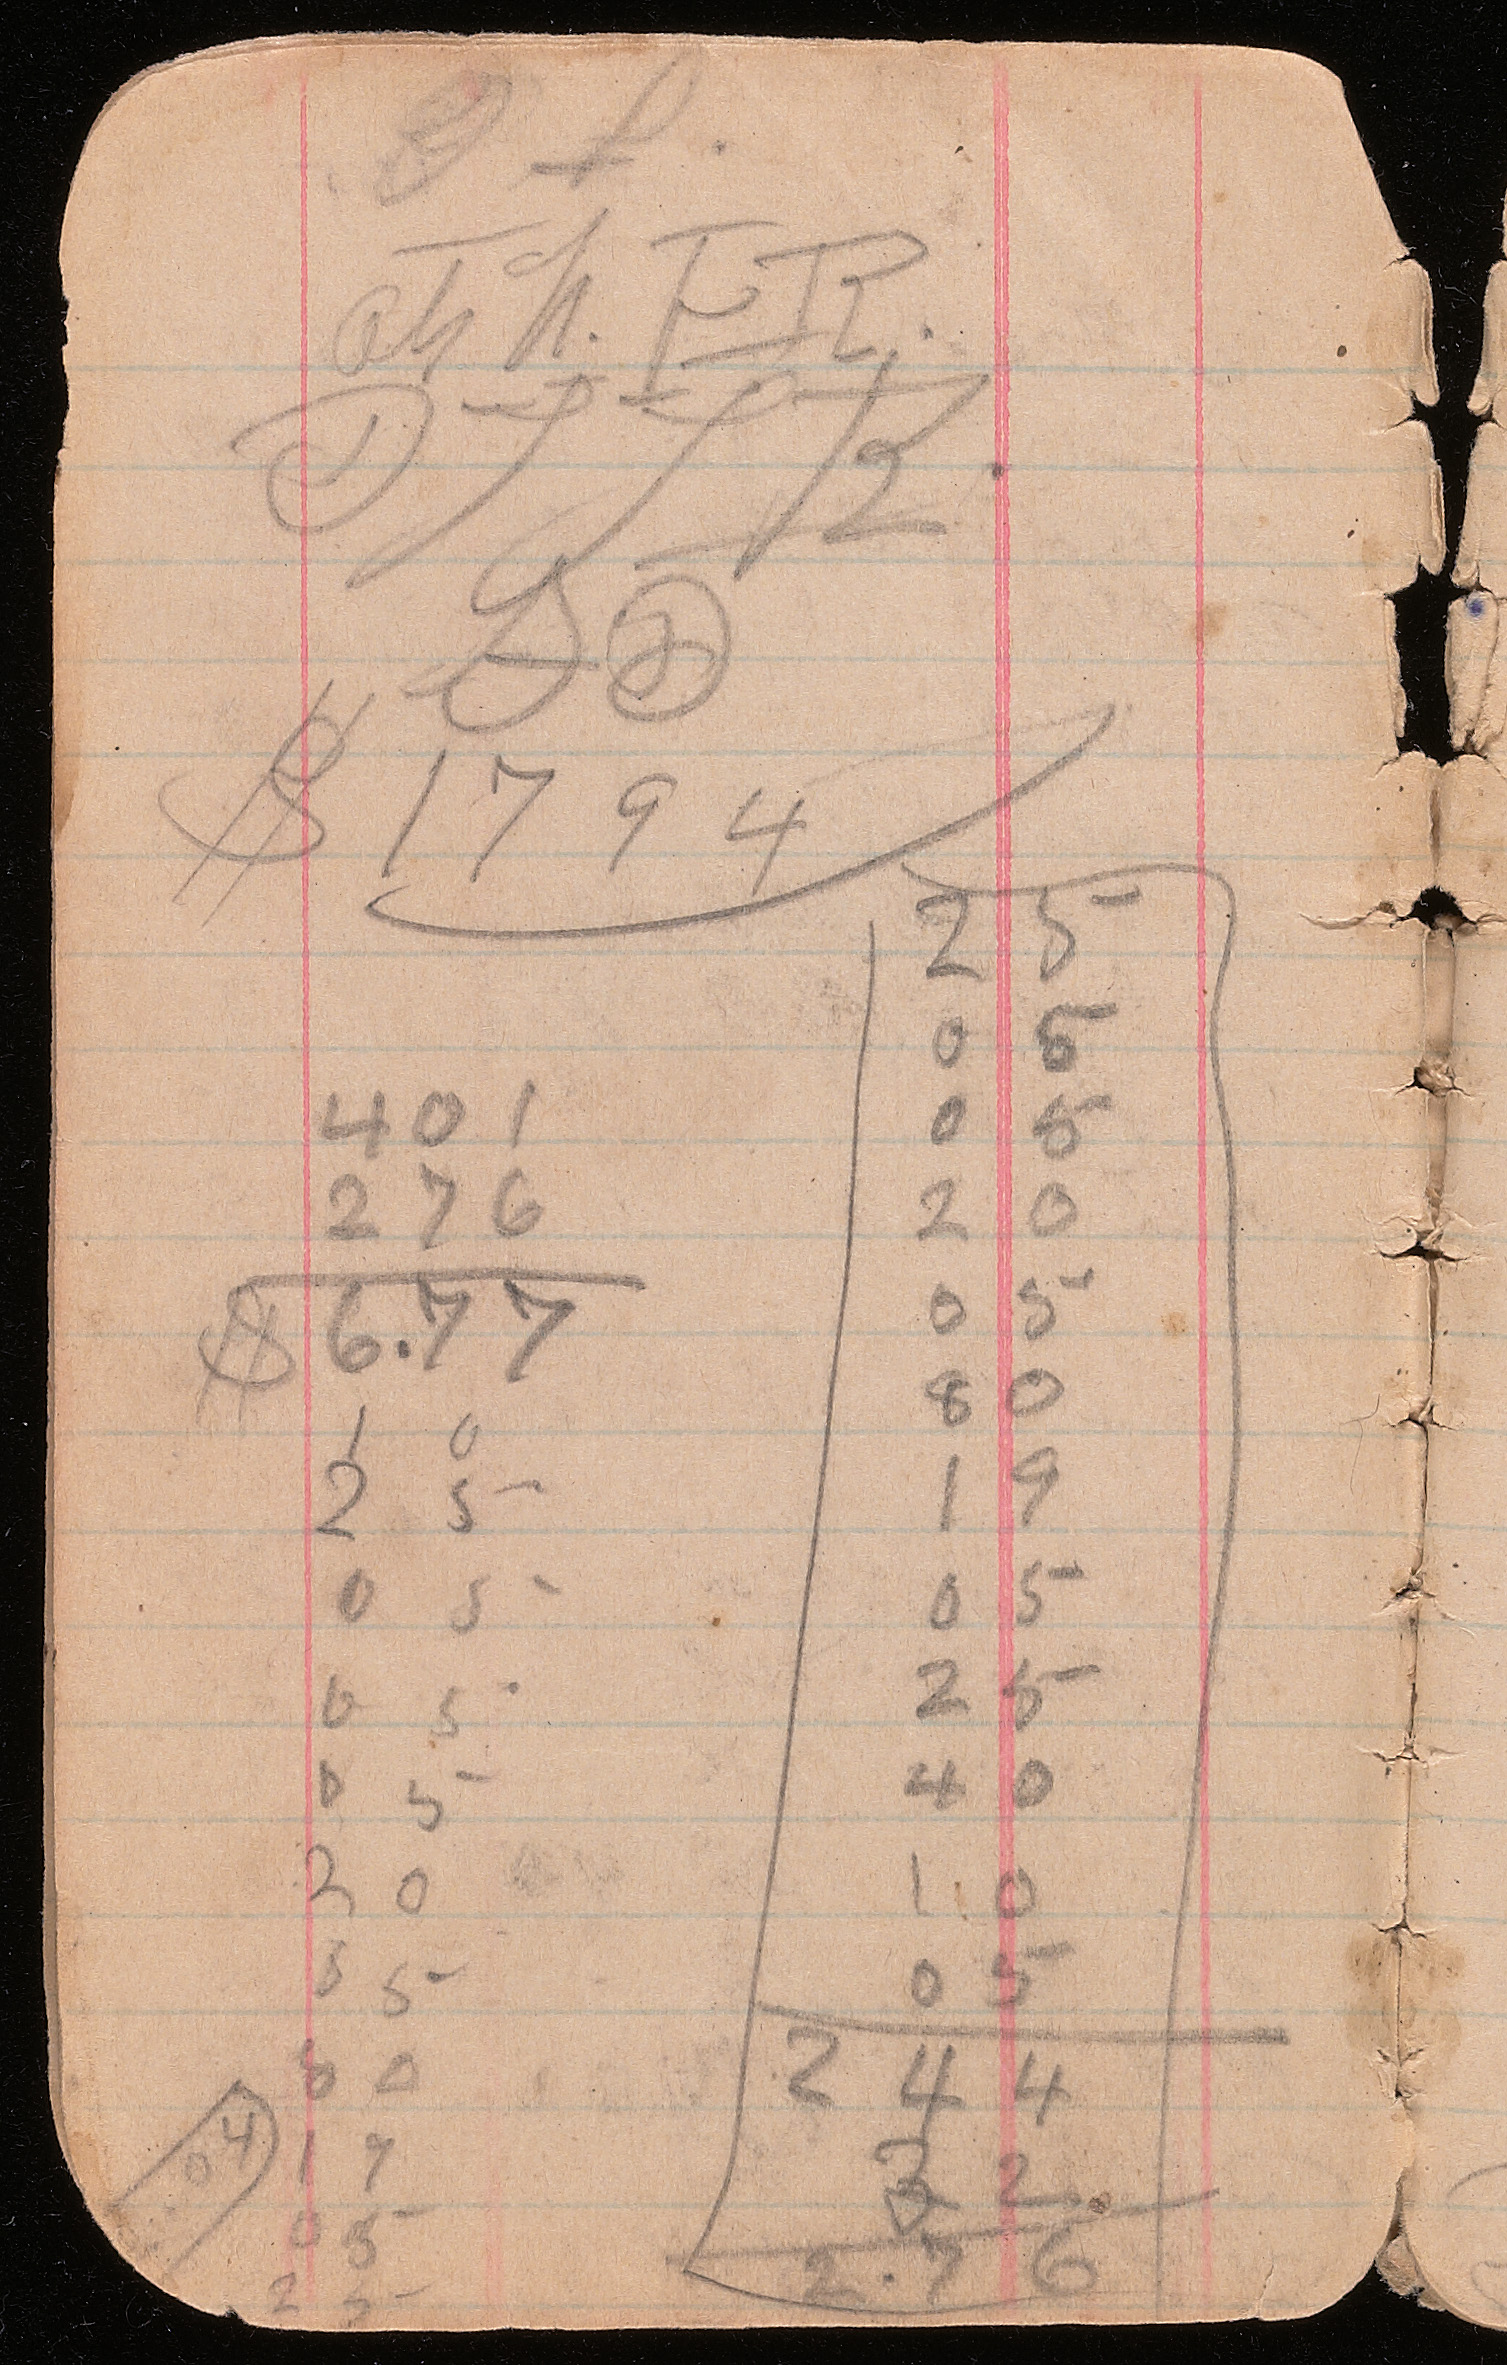 $ 1794
401
276
$ 6.77
10
25
05
05
05
20
05
80
19
05
25
.04
25
05
05
20
05
80
19
05
25
40
10
05
244
32
2.76